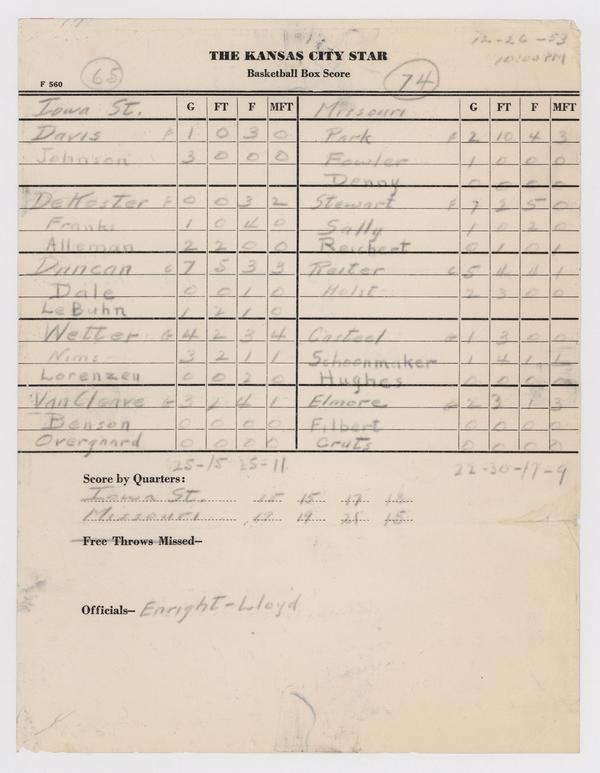 12-26-53
THE KANSAS CITY STAR
10:00 PM
Basketball Box Score
F 560
65
74
Iowa St. G FT F MFT Missouri G FT F MFT
Davis F 1 0 3 0 Park F 2 10 4 3
Johnson 3 0 0 0 Fowler 1 0 0 0
Denny 0 0 0 0
DeKoster F 0 0 3 2 Stewart F 7 2 5 0
Franks 1 0 4 0 Sally 1 0 2 0
Alleman 2 2 0 0 Reichert 0 1 0 1
Duncan C 7 5 3 3 Reiter C 5 4 4 1
Dale 0 0 1 0 Holst 2 3 0 0
LeBuhn 1 2 1 0
Wetter G 4 2 3 4 Casteel G 1 3 0 0
Nims 3 2 1 1 Schoonmaker 1 4 1 1
Lorenzen 0 0 2 0 Hughes 0 0 0 0
Van Cleave G 3 4 1 Elmore G 2 3 1 3
Benson 0 0 0 0 Filbert 0 0 0 0
Overgaard 0 0 0 0 Gruts 0 0 0 0
25-15 25-11 22-30-17-9
Score by Quarters:
Iowa St. 15 15 17 18
Missouri 19 19 21 15
Free Throws Missed—
Officials— Enright-Lloyd